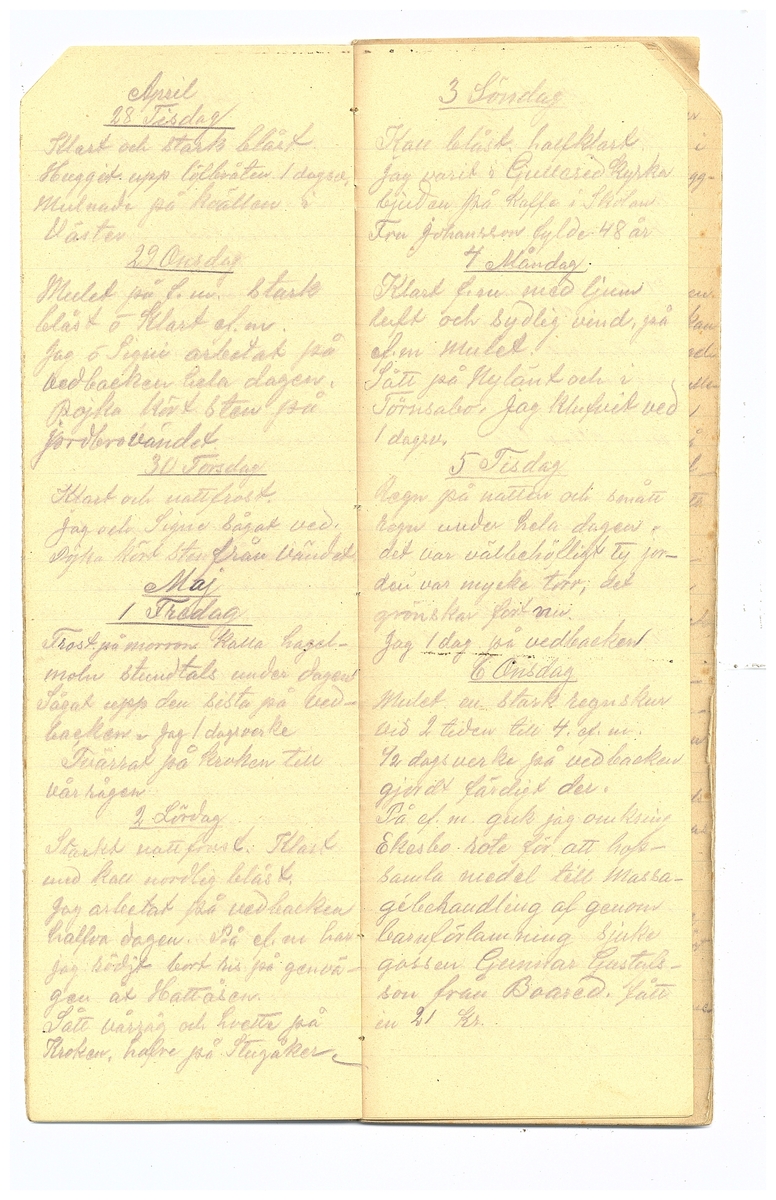 April
28 Tisdag
Klart och stark blåst.
Huggit upp löfbråten 1 dagsv.
Mulnade på kvällen i
Väster
29 Onsdag
Mulet på f.m. stark
blåst o klart ef.m.
Jag o Signe arbetat på
vedbacken hela dagen.
Pojka kört sten på
jordbrovändet
30 Torsdag
Klart och nattfrost.
Jag och Signe sågat ved.
Pojka kört sten från Vändet
Maj
1 Fredag
Frost på morron kalla hagel-
moln stundtals under dagen
Sågat upp den sista på ved-
backen. Jag 1 dagsverke
Tvärrat på kroken till
vårrågen
2 Lördag
Starkt nattfrost. Klart
med kall nordlig blåst.
Jag arbetat på vedbacken
halfva dagen. På ef.m har
jag rödjt bort ris på genvä-
gen åt Hattåsen.
Sått vårråg och hvete på
Kroken, hafre på Stugåker
3 Söndag
Kall blåst, halfklart
Jag varit i Gullered Kyrka
bjuden på kaffe i Skolan
Fru Johansson fylde 48 år
4 Måndag
Klart f.m. med ljum
luft och sydlig vind, på
ef.m mulet.
Sått på Nylänt och i
Törnsabo. Jag klufvit ved
1 dagsv.
5 Tisdag
Regn på natten och smått
regn under hela dagen.
det var välbehöfligt ty jor-
den var mycke torr, det
grönskar fort nu.
Jag 1 dag på vedbacken
6 Onsdag
Mulet en stark regnskur
vid 2 tiden till 4. ef.m.
1/2 dagsverke på vedbacken
gjordt färdigt der.
På ef.m. gick jag omkring
Ekesbo rote för att hop-
samla medel till massa-
gebehandling af genom
barnförlamning sjuke
gossen Gunnar Gustafs-
son från Boared. Fått
in 21 Kr.